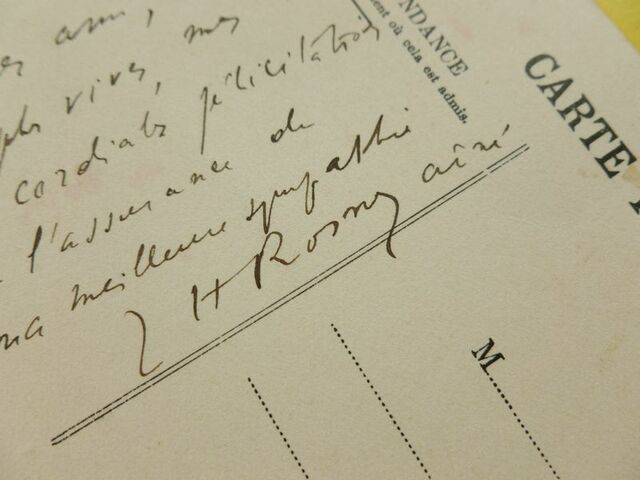 ami, mes
plus vives, 
cordiales félicitations
l'assurance de
ma meilleure sympathie
J H Rosny aîné
NDANCE
ent où cela est admis.
CARTE
M